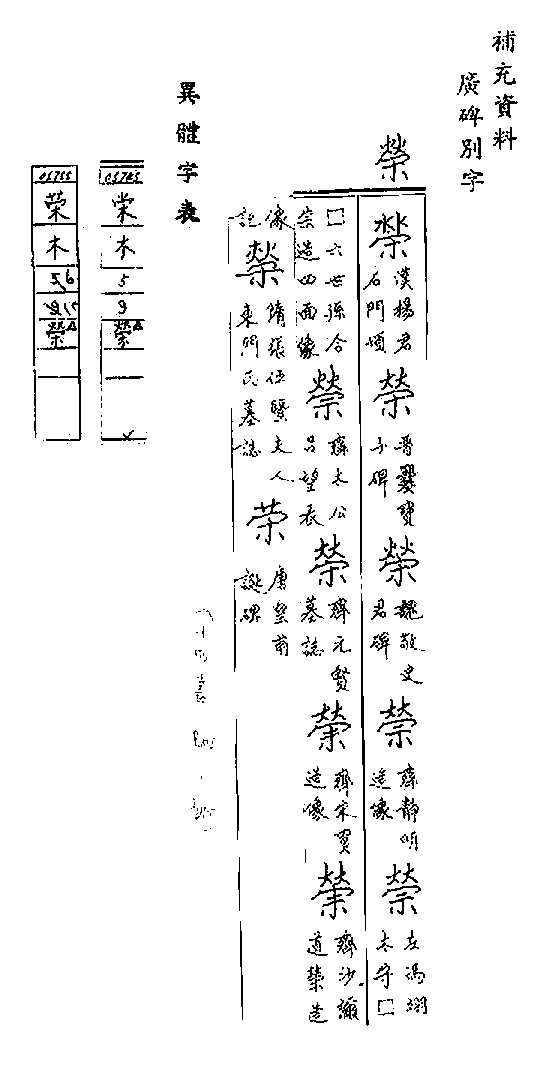 補充資料
廣碑別字
榮
榮 漢楊君石門頌 榮 晉爨寶子碑 榮 魏敬史君碑 榮 齊靜明造像 榮 左馮翊太守□
□六世孫合宗造四面像 榮 齊太公呂望表 榮 齊元賢墓誌 榮 齊宋買造像 榮 齊沙彌道榮造
像記 榮 隋張伍賢夫人東門氏墓誌 荣 唐皇甫誕碑
異體字表
05785
木
5
9
榮
05755
荣
木
5,6
榮